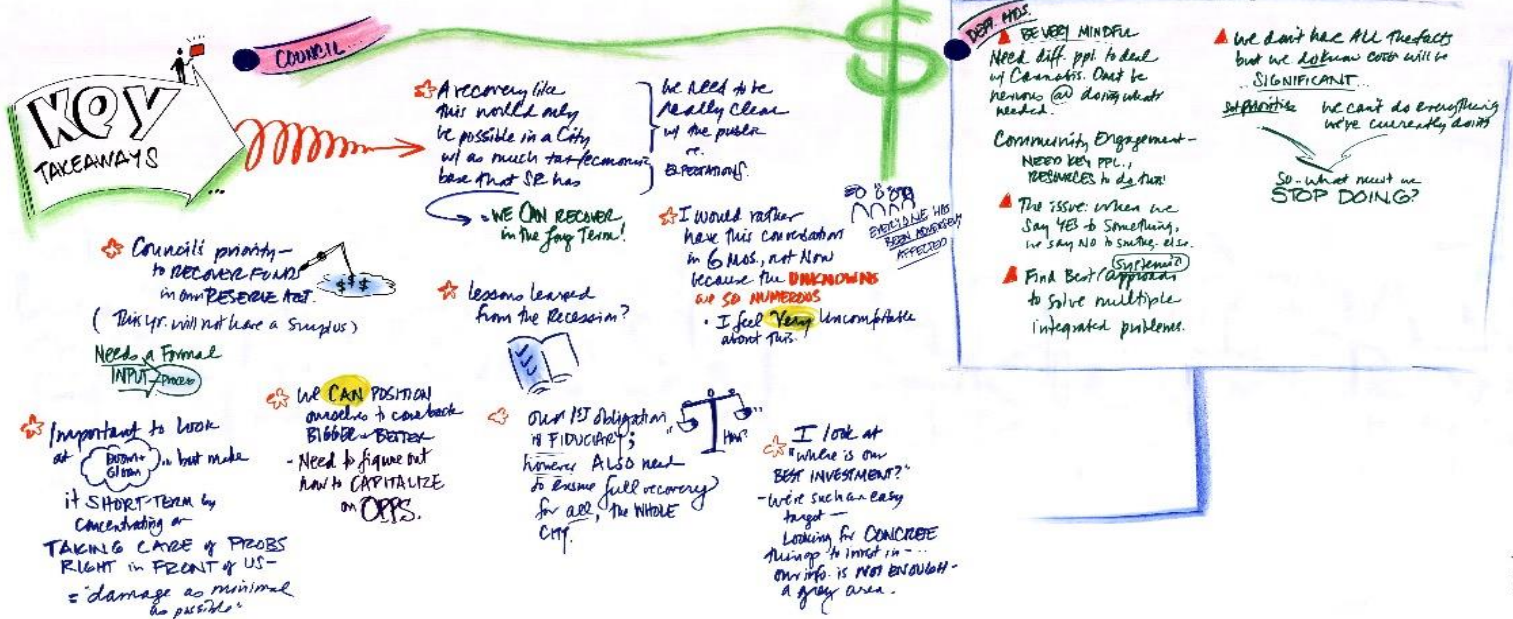 KEY
TAKEAWAYS
...
COUNCIL
A recovery like
this would only
be possible in a City
w/ as much tax/economic
base that SR has
we need to be
really clear
w/ the public
re.
EXPECTATIONS.
WE CAN RECOVER
in the Long Term!
Council's priority -
to RECOVER FUNDS
in our RESERVE ACCT.
$$$
(This yr. will not have a Surplus)
Needs a Formal
INPUT process
lessons learned
from the Recession?
I would rather
have this conversation
in 6 mos., not Now
because the UNKNOWNS
are SO NUMEROUS
• I feel Very Uncomfortable
about this.
$
EVERYONE HAS
BEEN ADVERSELY
AFFECTED
Important to look
at Doom + Gloom ... but make
it SHORT-TERM by
concentrating on
TAKING CARE of PROBS
RIGHT in FRONT of US -
= "damage as minimal
as possible"
We CAN POSITION
ourselves to come back
BIGGER + BETTER
- Need to figure out
how to CAPITALIZE
on OPPS.
Our 1st obligation
is FIDUCIARY;
however ALSO need
to ensure full recovery
for all, the WHOLE
CITY.
HOW?
I look at
"where is our
BEST INVESTMENT?"
- We're such an easy
target -
Looking for CONCRETE
things to invest in - ...
our info. is NOT ENOUGH -
a grey area.
DEPT. HDS.
BE VERY MINDFUL
Need diff. ppl. to deal
w/ Cannabis. Don't be
nervous @ doing what's
needed.
Community Engagement -
NEED KEY PPL.,
RESOURCES to do this!
The issue: when we
say YES to something,
we say NO to smthg. else.
(systemic)
Find Best / approach
to solve multiple
integrated problems.
We don't have ALL the facts
but we do know costs will be
SIGNIFICANT
Set priorities
we can't do everything
we're currently doing
So - what must we
STOP DOING?